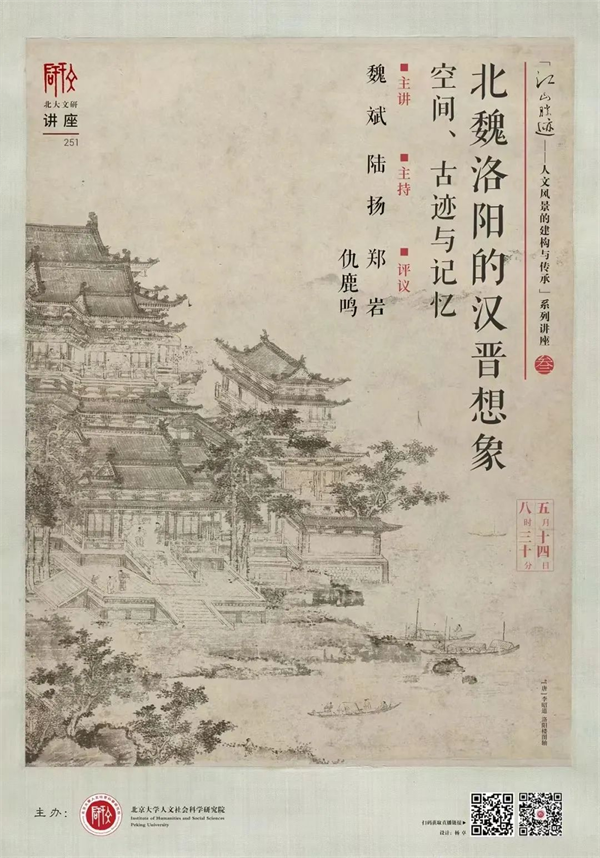 北大文研
讲座
251
「江山胜迹——人文风景的建构与传承」系列讲座
叁
北魏洛阳的汉晋想象
空间、古迹与记忆
■主讲
魏斌
■主持
陆扬
■评议
郑岩
仇鹿鸣
五月十四日
八时三十分
[唐]李昭道 洛阳楼图轴
主办：
北京大学人文社会科学研究院
Institute of Humanities and Social Sciences
Peking University
设计：杨卓